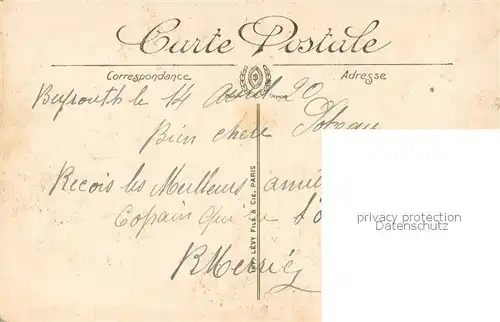 Carte Postale
Correspondance
Adresse
Beyrouth le 14 Avril 20
Bien chere
Recois les Meilleurs
Copain que
IMP. LÉVY FILS & CIE, PARIS
privacy protection
Datenschutz